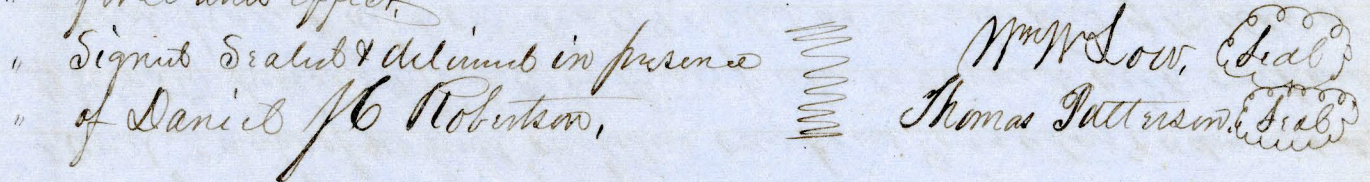 force and effect.
" Signed Sealed & delivered in presence
" of Daniel H Robertson,
Wm W Low, Seal
Thomas Patterson, Seal